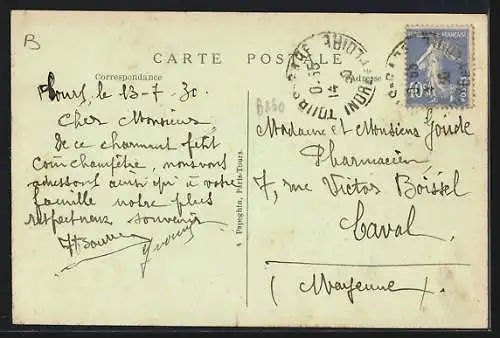 B
CARTE POSTALE
Correspondance
Adresse
Tours, le 13-7-30
Cher Monsieur
De ce charmant petit
coin champêtre, nous vous
adressons ainsi qu'à votre
famille notre plus
respectueux souvenir
Yvonne
Papeghin, Paris-Tours.
TOURS-GARE
INDRE-ET-LOIRE
14
Madame et Monsieur
Pharmacien
7, rue Victor Boissel
Laval
(Mayenne)